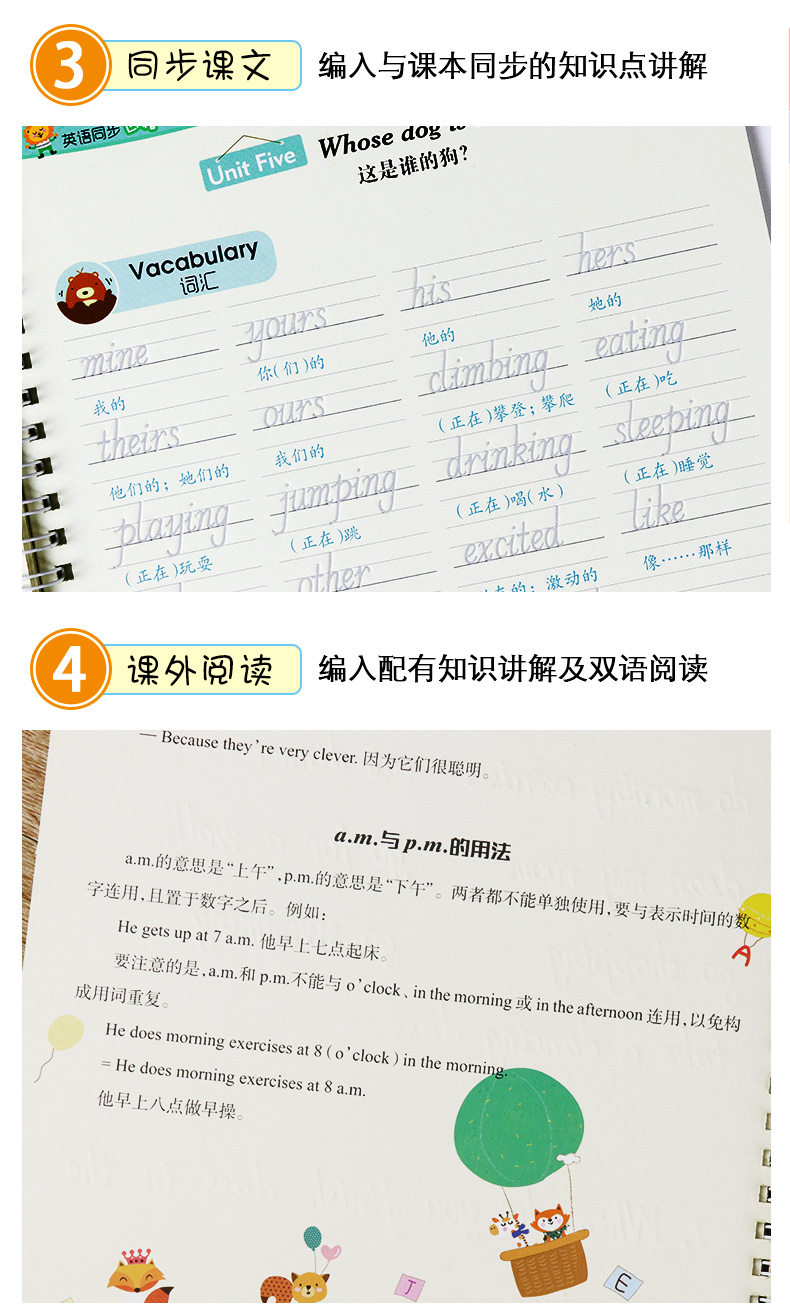 3 同步课文 编入与课本同步的知识点讲解
英语同步
Unit Five Whose dog is
这是谁的狗?
Vacabulary
词汇
mine yours his hers
我的 你(们)的 他的 她的
theirs ours climbing eating
他们的;她们的 我们的 (正在)攀登;攀爬 (正在)吃
playing jumping drinking sleeping
(正在)玩耍 (正在)跳 (正在)喝(水) (正在)睡觉
other excited like
的;激动的 像……那样
4 课外阅读 编入配有知识讲解及双语阅读
— Because they're very clever. 因为它们很聪明。
a.m.与 p.m.的用法
a.m.的意思是“上午”,p.m.的意思是“下午”。两者都不能单独使用,要与表示时间的数
字连用,且置于数字之后。例如:
He gets up at 7 a.m. 他早上七点起床。
要注意的是,a.m.和 p.m.不能与 o'clock、in the morning 或 in the afternoon 连用,以免构
成用词重复。
He does morning exercises at 8 ( o'clock ) in the morning.
= He does morning exercises at 8 a.m.
他早上八点做早操。
A
J
E